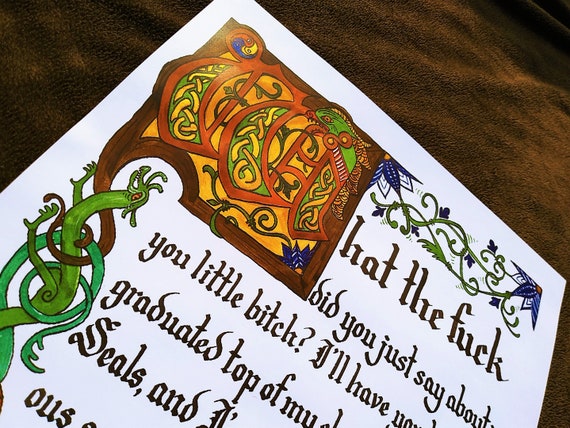 What the fuck
did you just say about
you little bitch? I'll have you
graduated top of my
Seals, and I'
ous